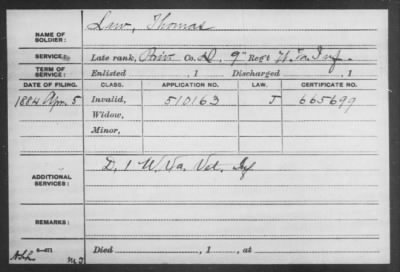 NAME OF SOLDIER: Lew, Thomas
SERVICE: Late rank, Priv Co. D, 9" Reg't W. Va. Inf.
TERM OF SERVICE: Enlisted , 1 Discharged , 1
DATE OF FILING. CLASS. APPLICATION NO. LAW. CERTIFICATE NO.
1884 Apr. 5 Invalid, 510163 J 665699
Widow,
Minor,
ADDITIONAL SERVICES: D, 1 W. Va. Vet. Inf
REMARKS:
Died , 1 , at